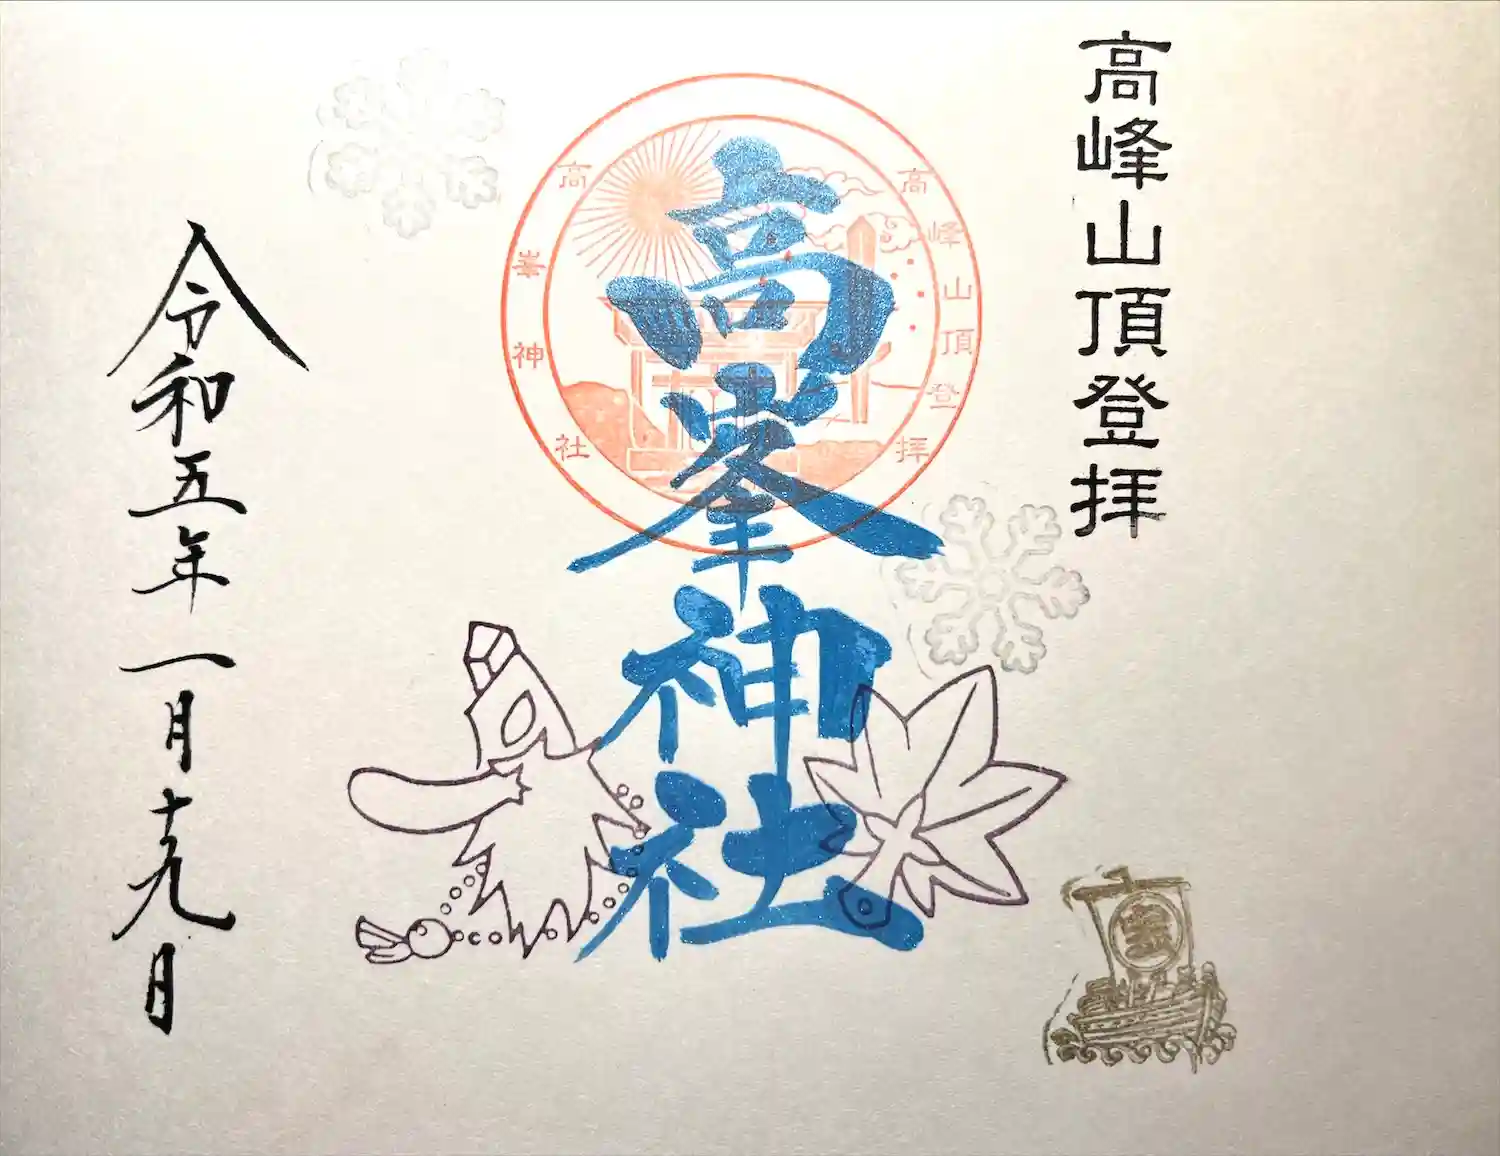 高峰山頂登拝
高峰山頂登拝
高峯神社
高峯神社
令和五年一月十九日